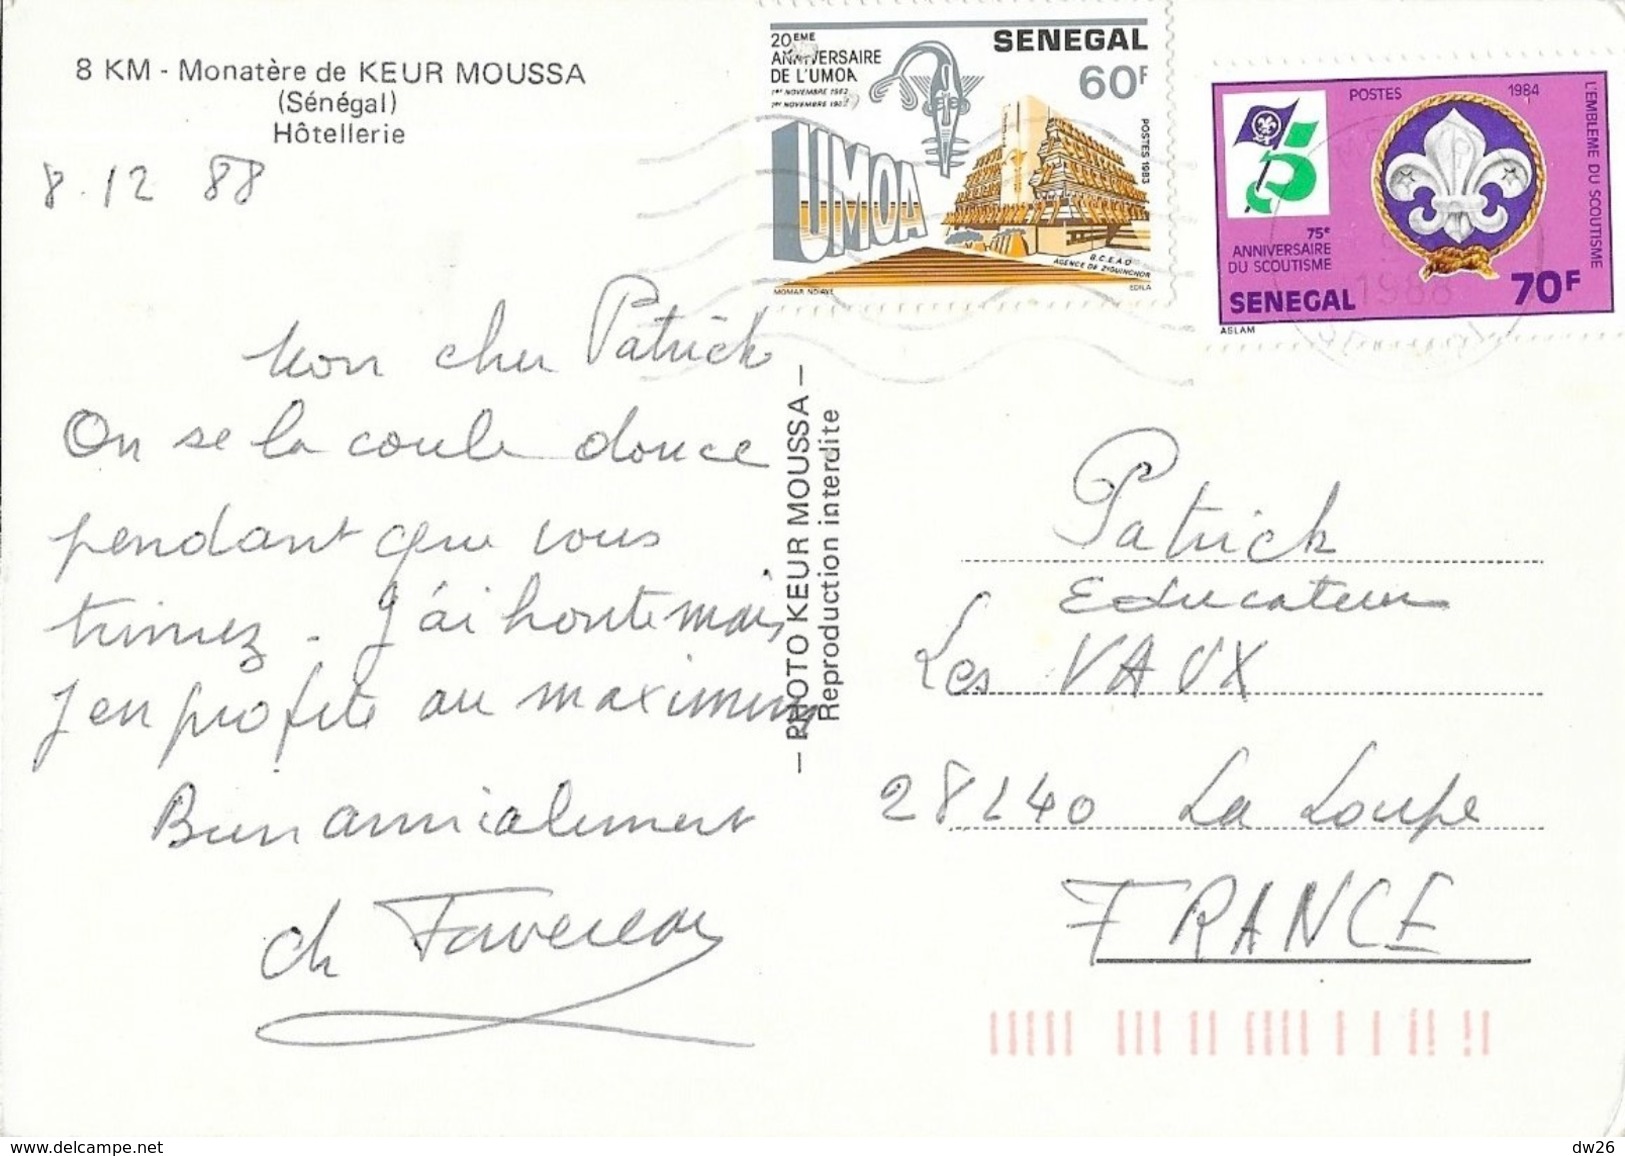 8 KM - Monatère de KEUR MOUSSA
(Sénégal)
Hôtellerie
8.12 88
20EME
ANNIVERSAIRE
DE L'UMOA
1er NOVEMBRE 1962
1er NOVEMBRE 1982
SENEGAL
60F
UMOA
POSTES 1983
B.C.E.A.O
AGENCE DE ZIGUINCHOR
MOMAR NDIAYE
EDILA
POSTES
1984
L'EMBLEME DU SCOUTISME
75e
ANNIVERSAIRE
DU SCOUTISME
SENEGAL
70F
ASLAM
1988
Mon cher Patrick
On se la coule douce
pendant que vous
trimez. J'ai honte mais
J'en profite au maximum
Bien amicalement
ch Favereau
— PHOTO KEUR MOUSSA —
Reproduction interdite
Patrick
Educateur
Les VAUX
28240 La Loupe
FRANCE
delcampe.net
dw26